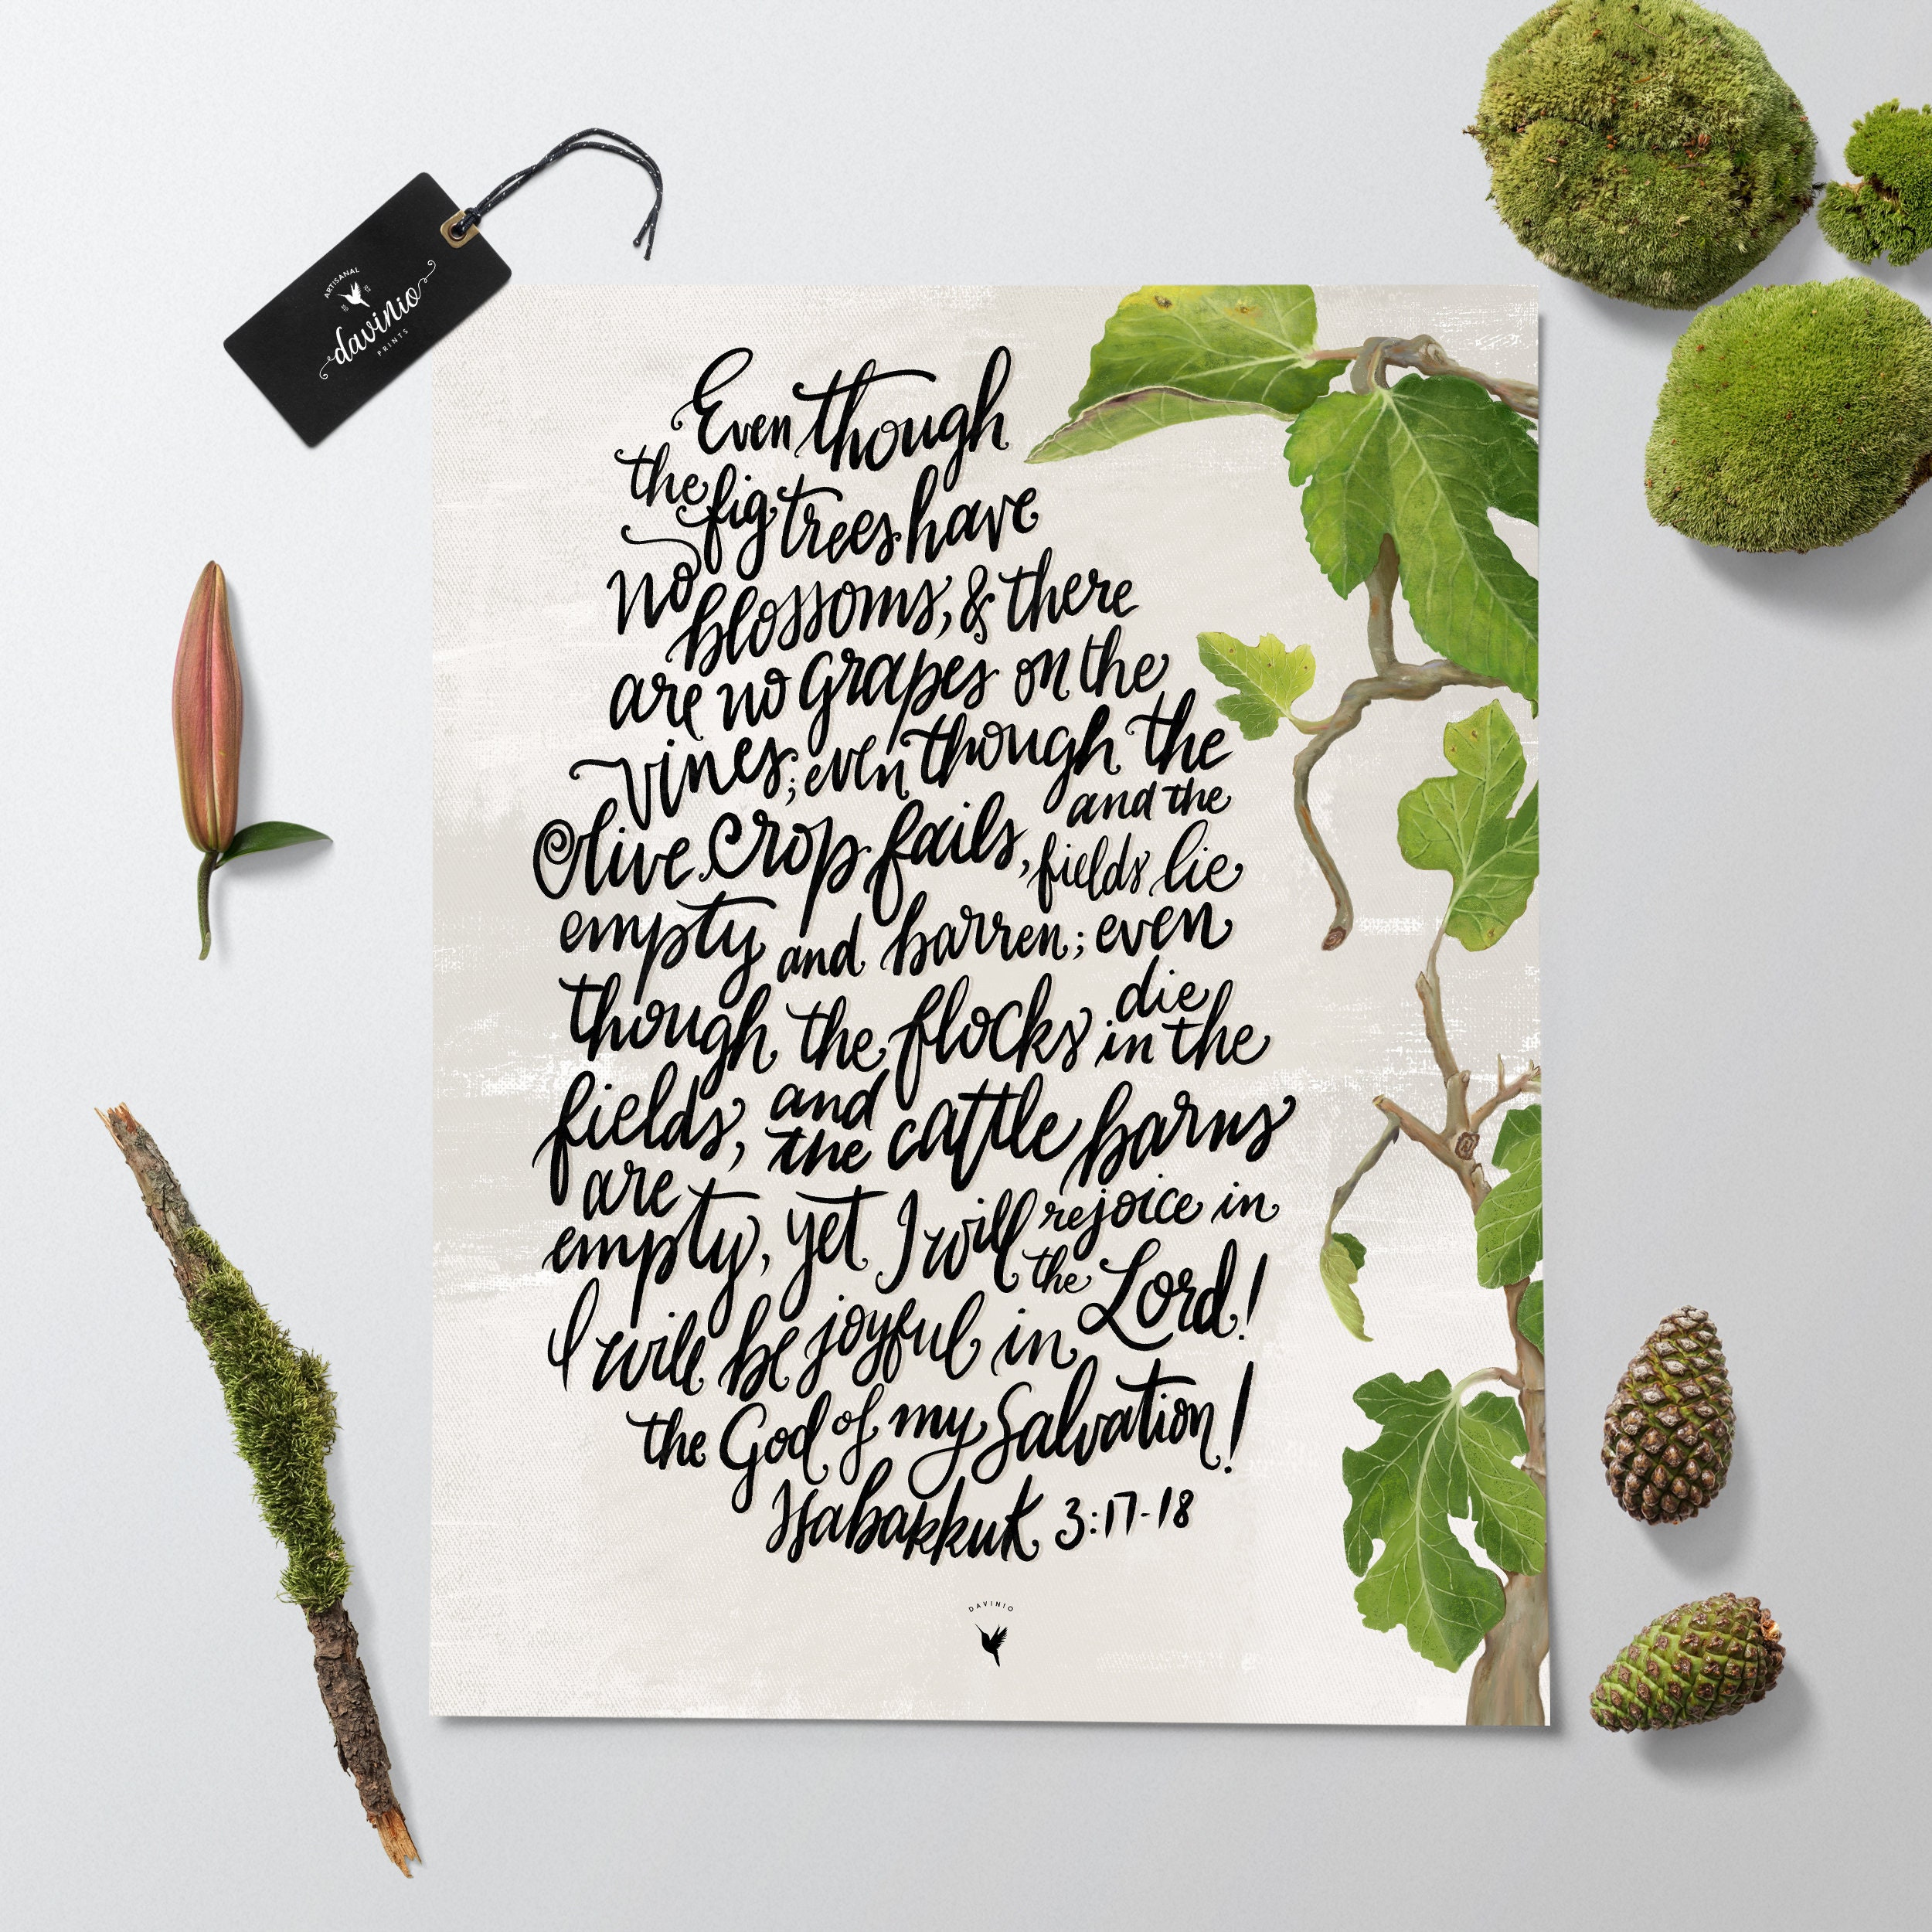 ARTISANAL
davinio
PRINTS
Even though
the fig trees have
no blossoms, & there
are no grapes on the
vines; even though the
Olive Crop fails, and the
fields lie
empty and barren; even
though the flocks die
in the
fields, and
the cattle barns
are
empty, yet I will rejoice in
the Lord!
I will be joyful in
the God of my Salvation!
Habakkuk 3:17-18
DAVINIO